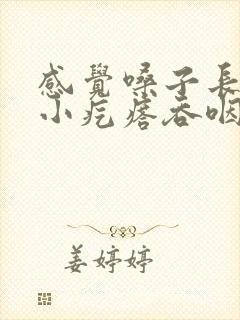 感覺嗓子長
小疙瘩吞咽
姜婷婷